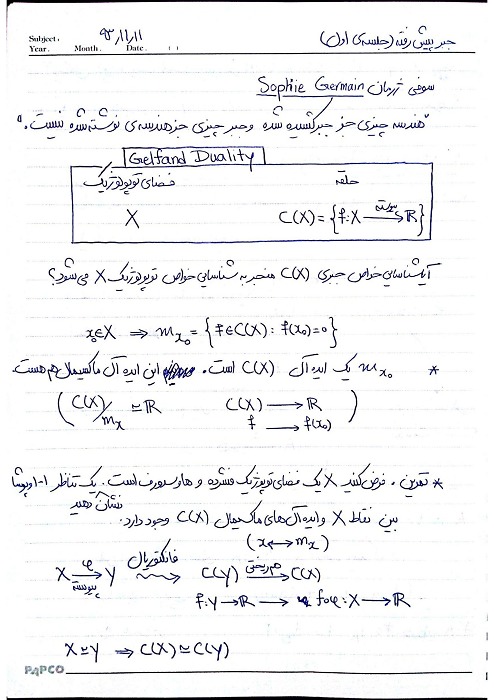 Subject:
Year. Month. Date. ۹۳/۱۱/۱۱
جبر پیش رفته (جلسه‌ی اول)
سوفی ژرمان Sophie Germain
"هندسه چیزی جز جبر کشیده شده و جبر چیزی جز هندسه‌ی نوشته شده نیست."
Gelfand Duality
فضای توپولوژیک حلقه
X C(X) = {f: X —پیوسته→ ℝ}
آیا شناسایی خواص جبری C(X) منجر به شناسایی خواص توپولوژیک X می‌شود؟
x₀∈X ⇒ m_{x₀} = {f∈C(X): f(x₀)=0}
* m_{x₀} یک ایده‌آل C(X) است. این ایده‌آل ماکسیمال هم هست.
(C(X)/m_x ≃ ℝ C(X) → ℝ
f → f(x₀))
* تمرین. فرض کنید X یک فضای توپولوژیک فشرده و هاوسدورف است. یک تناظر ۱-۱ و پوشا
نشان دهید
بین نقاط X و ایده‌آل‌های ماکسیمال C(X) وجود دارد.
(x ↔ m_x)
X —φ پیوسته→ Y فانکتوریال ⇝ C(Y) —همریختی→ C(X)
f: Y → ℝ → foφ: X → ℝ
X ≃ Y ⇒ C(X) ≃ C(Y)
PAPCO